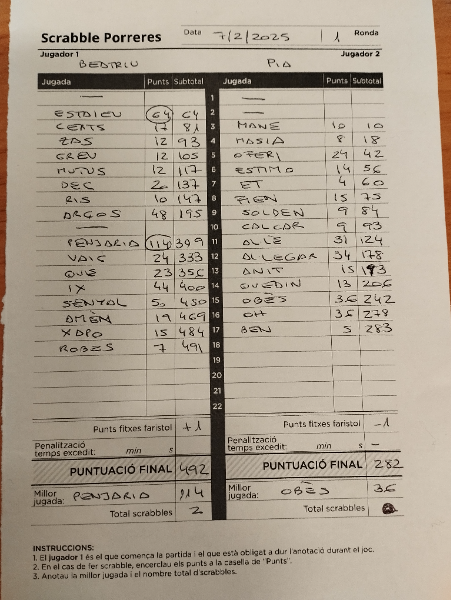 Scrabble Porreres Data 7/2/2025 | 1 Ronda
Jugador 1 Jugador 2
BEATRIU PIA
Jugada Punts Subtotal Jugada Punts Subtotal
— 1 —
ESTAIEU 64 64 2 —
CENTS 17 81 3 MANE 10 10
ZAS 12 93 4 MASIA 8 18
GREU 12 105 5 OFERI 24 42
MUTUS 12 117 6 ESTIMO 14 56
DEC 20 137 7 ET 4 60
RIS 10 147 8 FIEN 15 75
ARGOS 48 195 9 SOLDEN 9 84
— 10 CALCAR 9 93
PENJARIA 114 309 11 ALLÈ 31 124
VAIG 24 333 12 AL·LEGAR 54 178
QUÈ 23 356 13 ANIT 15 193
IX 44 400 14 QUEDIN 13 206
SENYAL 50 450 15 OBÈS 36 242
AMÈN 19 469 16 OH 36 278
XAPO 15 484 17 BEN 5 283
ROBES 7 491 18
19
20
21
22
Punts fitxes faristol +1 Punts fitxes faristol -1
Penalització temps excedit: min s Penalització temps excedit: min s –
PUNTUACIÓ FINAL 492 PUNTUACIÓ FINAL 282
Millor jugada: PENJARIA 114 Millor jugada: OBÈS 36
Total scrabbles 2 Total scrabbles
INSTRUCCIONS:
1. El jugador 1 és el que comença la partida i el que està obligat a dur l'anotació durant el joc.
2. En el cas de fer scrabble, encerclau els punts a la casella de "Punts".
3. Anotau la millor jugada i el nombre total d'scrabbles.